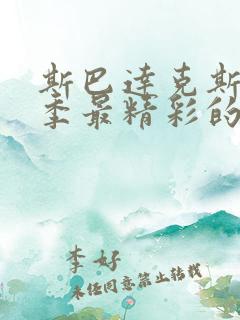 斯巴达克斯
季最精彩的
李好
未经同意禁止转载